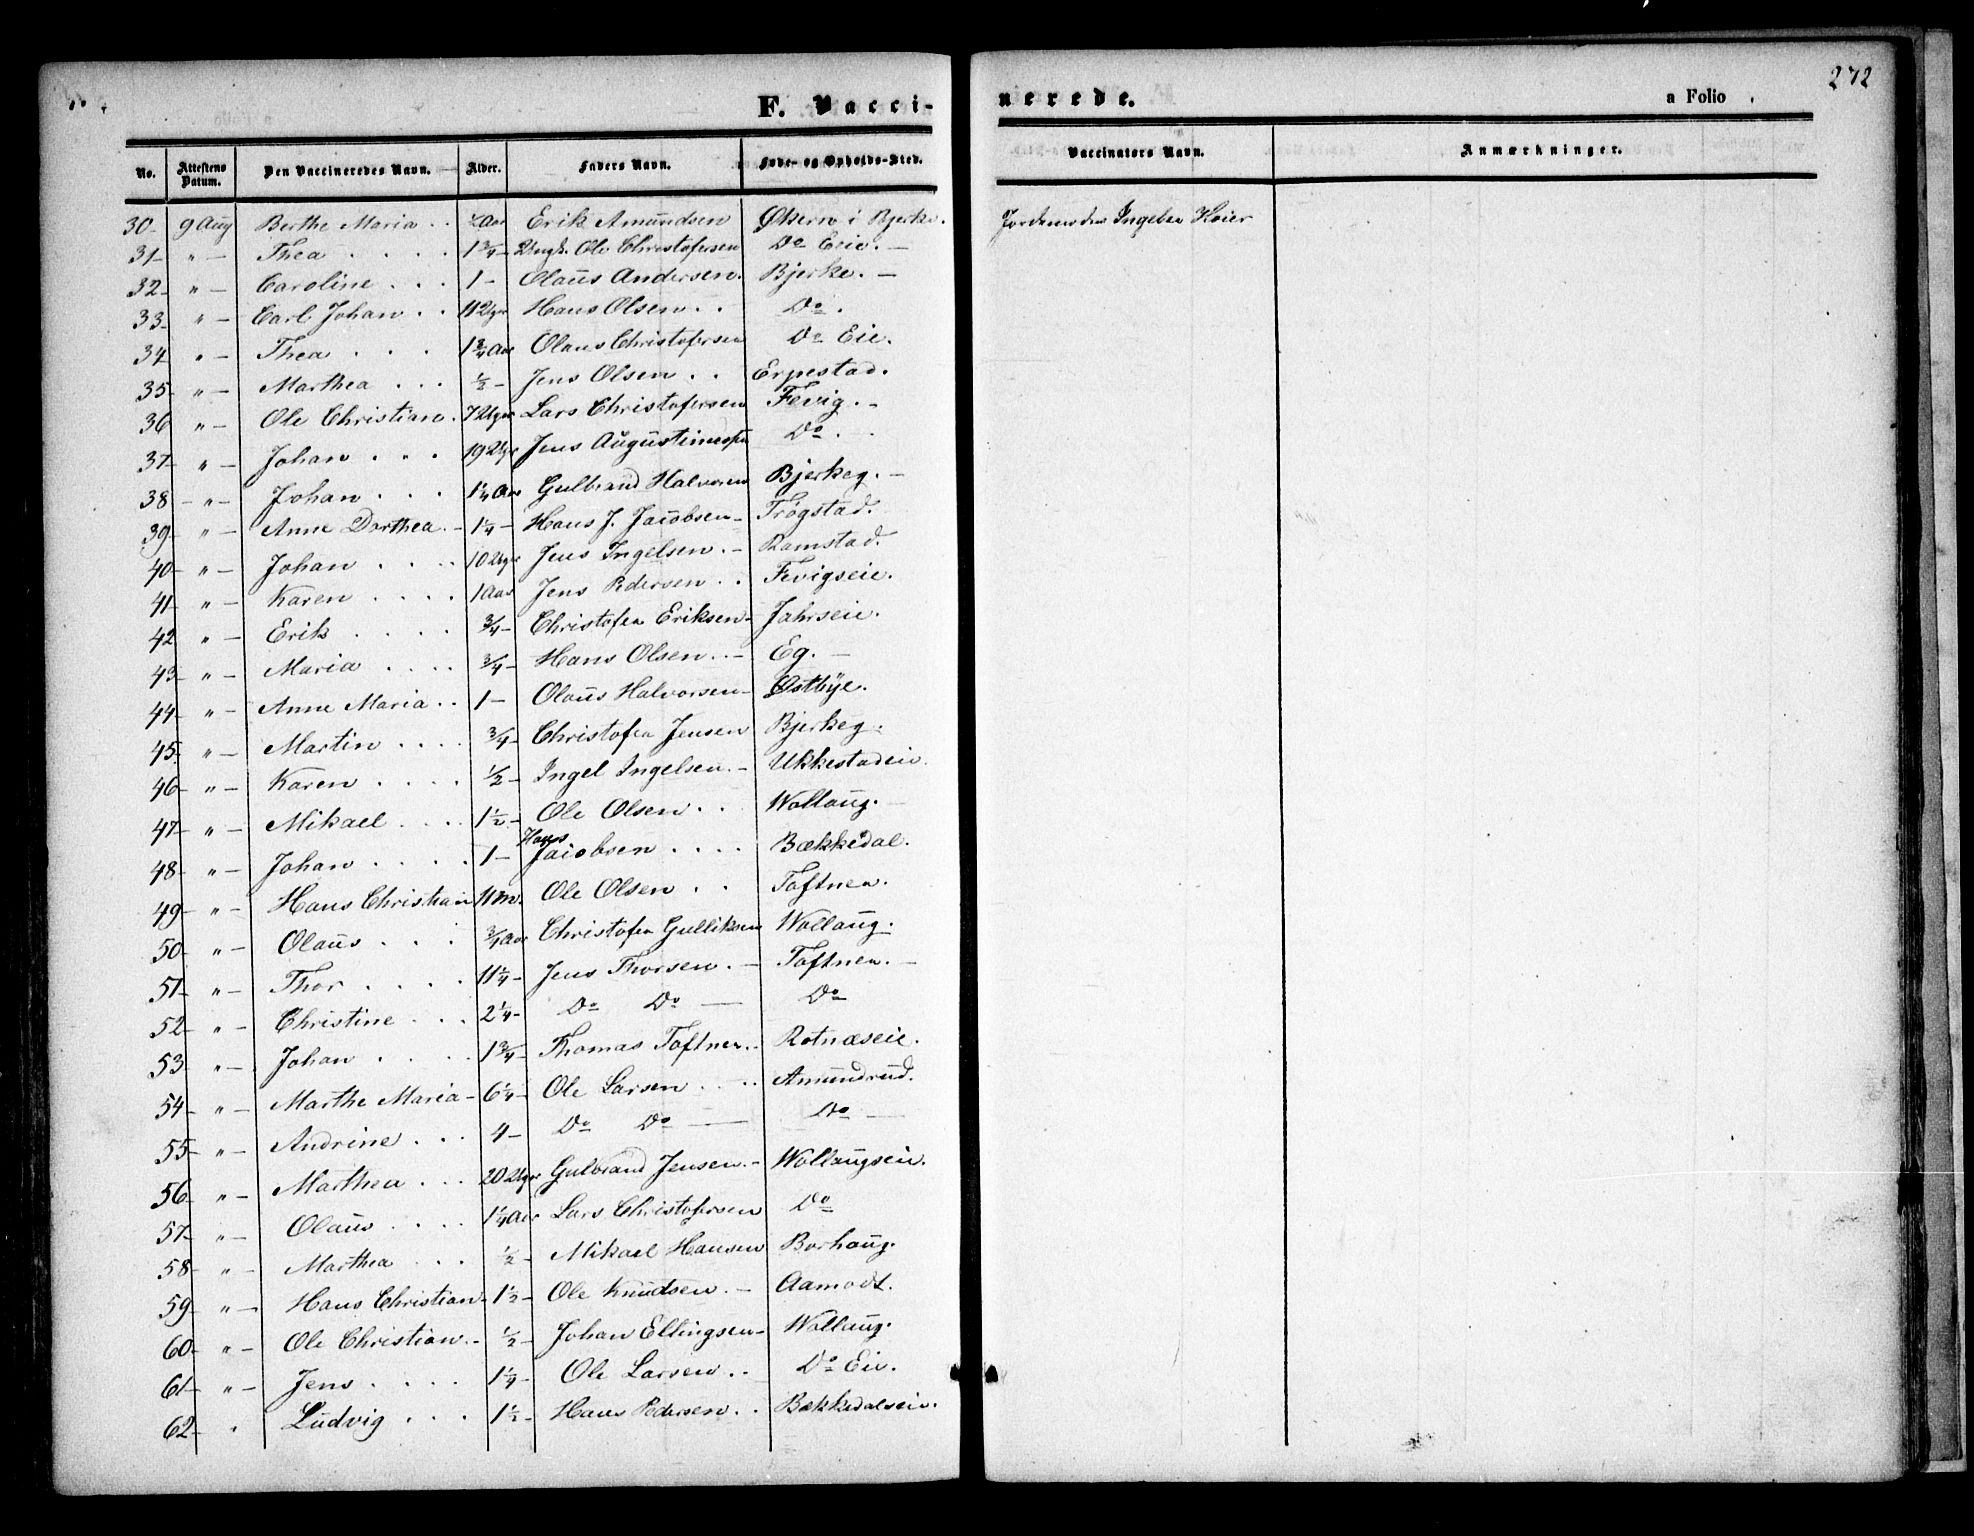 F. Vacci-
nerede.
a Folio
272
No. Attestens Datum. Den Vaccineredes Navn. Alder. Faders Navn. Føde- og Opholds-Sted. Vaccinators Navn. Anmærkninger.
30 - 9 Aug Berthe Maria . . Aar Erik Amundsen Økern i Bjerke. Jordemoder Ingeba Høier
31 - " - Thea . . . . 1 3/4 - Ungk. Ole Christofersen Do Eie. -
32 - " - Caroline . . . 1 - Olaus Andersen. Bjerke. -
33 - " - Carl Johan . . 11 Uger Hans Olsen . . Do .
34 " - Thea . . . 1 3/4 Aar Olaus Christofersen Do Eie.
35 - " - Marthea . . . 1/2 - Jens Olsen . . Erpestad.
36 " - Ole Christian . 7 Uger Lars Christofersen Fevig. -
37 - " - Johan . . . 19 Uger Jens Augustinussen Do . .
38 - " - Johan . . . 1 1/4 Aar Gulbrand Halvorsen Bjerkeg. -
39 " - Anne Dorthea - 1 1/4 - Hans J. Jacobsen - Trøgstad.
40 - " - Johan . . . . 10 Uger Jens Ingelsen. - Ramstad.
41 - " - Karen . . . . 1 Aar Jens Pedersen . . Fevigseie.
42 " - Erik . . . . 3/4 - Christofer Eriksen - Jahrseie.
43 - " - Maria . . . . 3/4 - Hans Olsen . . - Eg. -
44 - " - Anne Maria . . 1 - Olaus Halvorsen - Østbye.
45 - " - Martin . . . . 3/4 - Christofer Jensen Bjerkeg.
46 - " - Karen . . . . 1/2 - Ingel Ingelsen. - Ukkestadeie.
47 - " - Mikael . . . . 1 1/2 - Ole Olsen . . Wollaug. -
48 - " - Johan . . . . . 1 - Hans Jacobsen . . . . Bækkedal.
49 - " - Hans Christian 11 M. Ole Olsen . . Toftner.
50 - " - Olaus . . . 3/4 Aar Christofer Gulliksen Wollaug.
51 - " - Thor . . . . 11 1/4 - Jens Thorsen. - Toftner. -
52 - " - Christine . . . 2 1/4 - Do Do - Do
53 " - Johan . . . . 1 3/4 - Thomas Toftner . . Rotnæseie.
54 - " - Marthe Maria - 6 1/4 - Ole Larsen . . . . Amundrud.
55 - " - Andrine . . . 4 - Do Do - Do -
56 - " - Marthea . . . 20 Uger Gulbrand Jensen. - Wollaugseie.
57 - " - Olaus . . . . 1 1/4 Aar Lars Christofersen Do
58 - " - Marthea . . . 1/2 - Mikael Hansen Borhaug.
59 - " - Hans Christian - 1 1/2 - Ole Knudsen . - Aamodt.
60 - " - Ole Christian. - 1/2 - Johan Ellingsen - Wollaug.
61 - " - Jens . . . . 1 1/4 - Ole Larsen . . Do Eie.
62 - " Ludvig . . . 1 1/2 - Hans Pedersen . . Bækkedalseie.